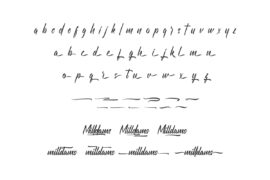 a b c d e f g h i j k l m n o p q r s t u v w x y z
a b c d e f g h i j k l m n
o p q r s t u v w x y z
Milldams Milldams Milldams
milldams milldams milldams milldams